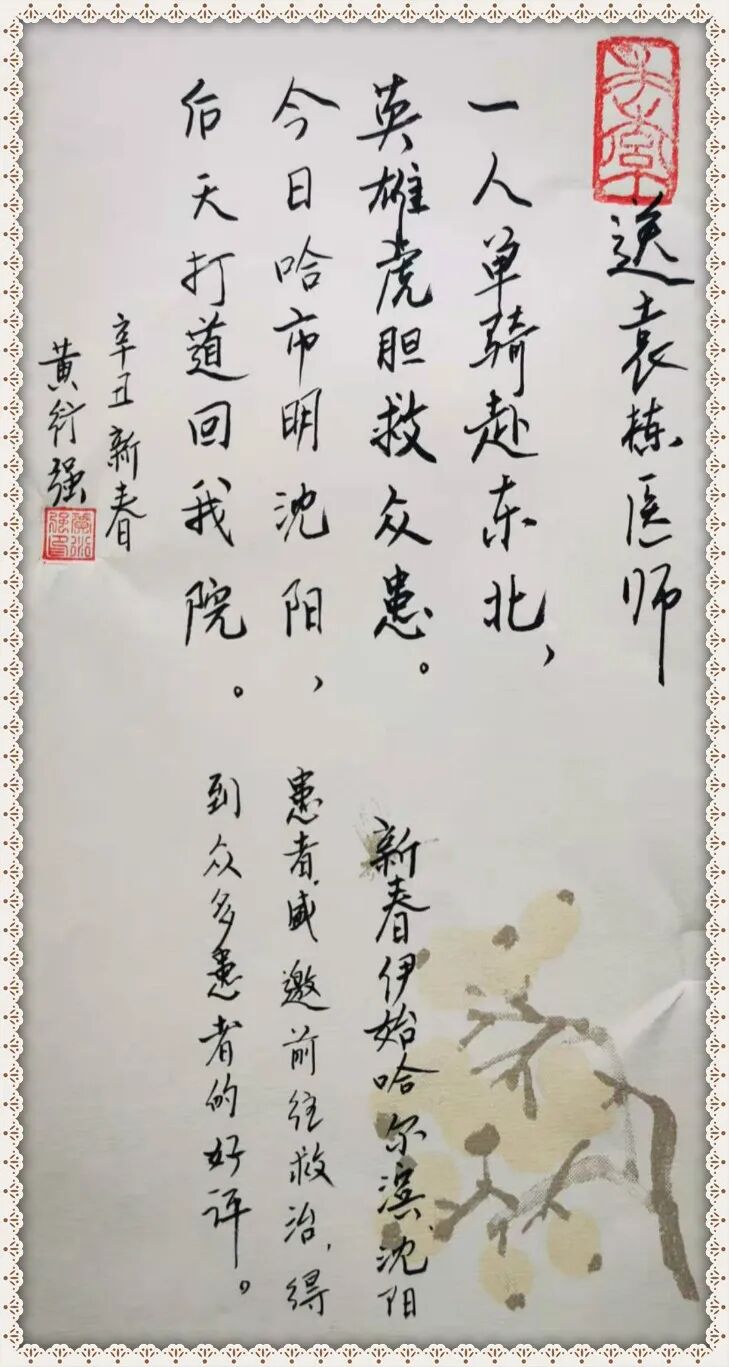 送袁栋医师
一人单骑赴东北，
英雄虎胆救众患。
今日哈市明沈阳，
后天打道回我院。
辛丑新春
黄衍强
新春伊始哈尔滨、沈阳
患者盛邀前往救治，得
到众多患者的好评。